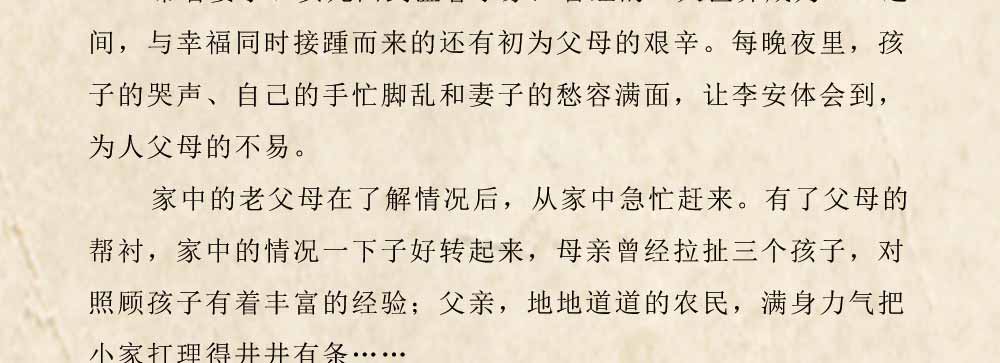 间，与幸福同时接踵而来的还有初为父母的艰辛。每晚夜里，孩
子的哭声、自己的手忙脚乱和妻子的愁容满面，让李安体会到，
为人父母的不易。
家中的老父母在了解情况后，从家中急忙赶来。有了父母的
帮衬，家中的情况一下子好转起来，母亲曾经拉扯三个孩子，对
照顾孩子有着丰富的经验；父亲，地地道道的农民，满身力气把
小家打理得井井有条……